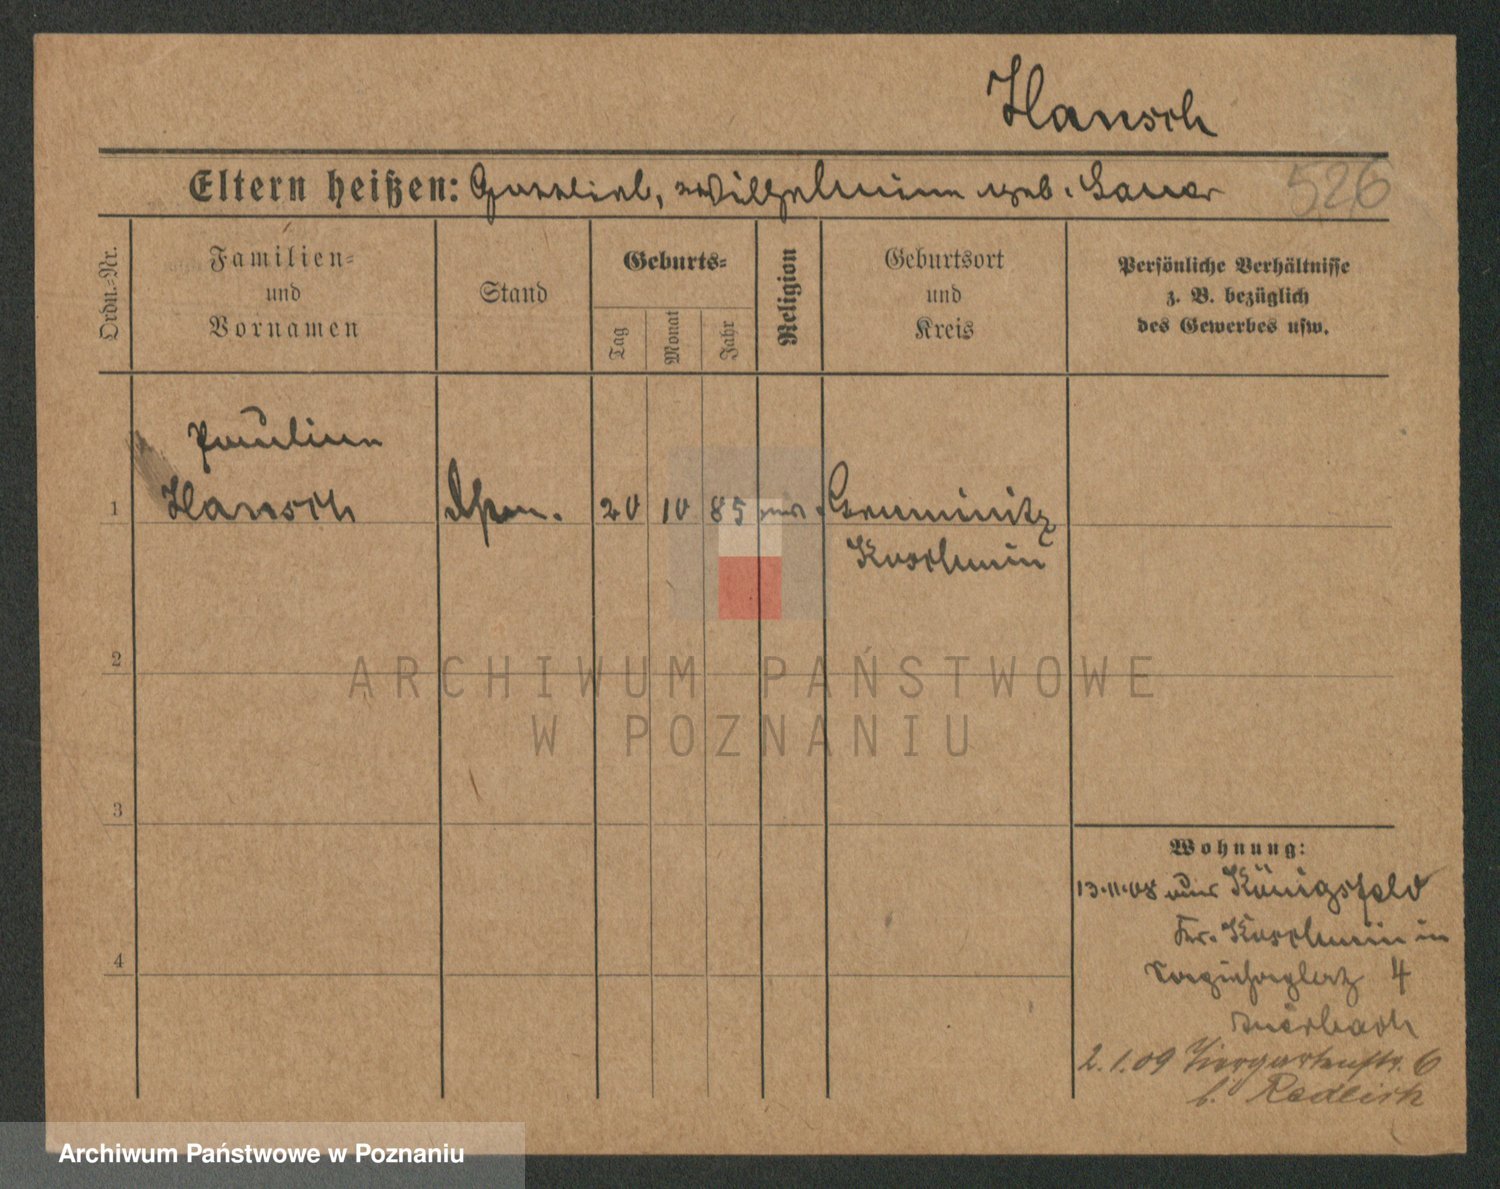 Hansch
Eltern heißen: Gottlieb, Wilhelmine geb. Sauer
526
Ordn.-Nr.
Familien-
und
Vornamen
Stand
Geburts-
Tag
Monat
Jahr
Religion
Geburtsort
und
Kreis
Persönliche Verhältnisse
z. B. bezüglich
des Gewerbes usw.
Pauline
1 Hansch 20 10 85
Koschmin
2
3
4
Wohnung:
13.11.08 aus Königsfeld
Kr. Koschmin in
4
2.1.09 Tiergartenstr. 6
b. Radleick
ARCHIWUM PAŃSTWOWE
W POZNANIU
Archiwum Państwowe w Poznaniu